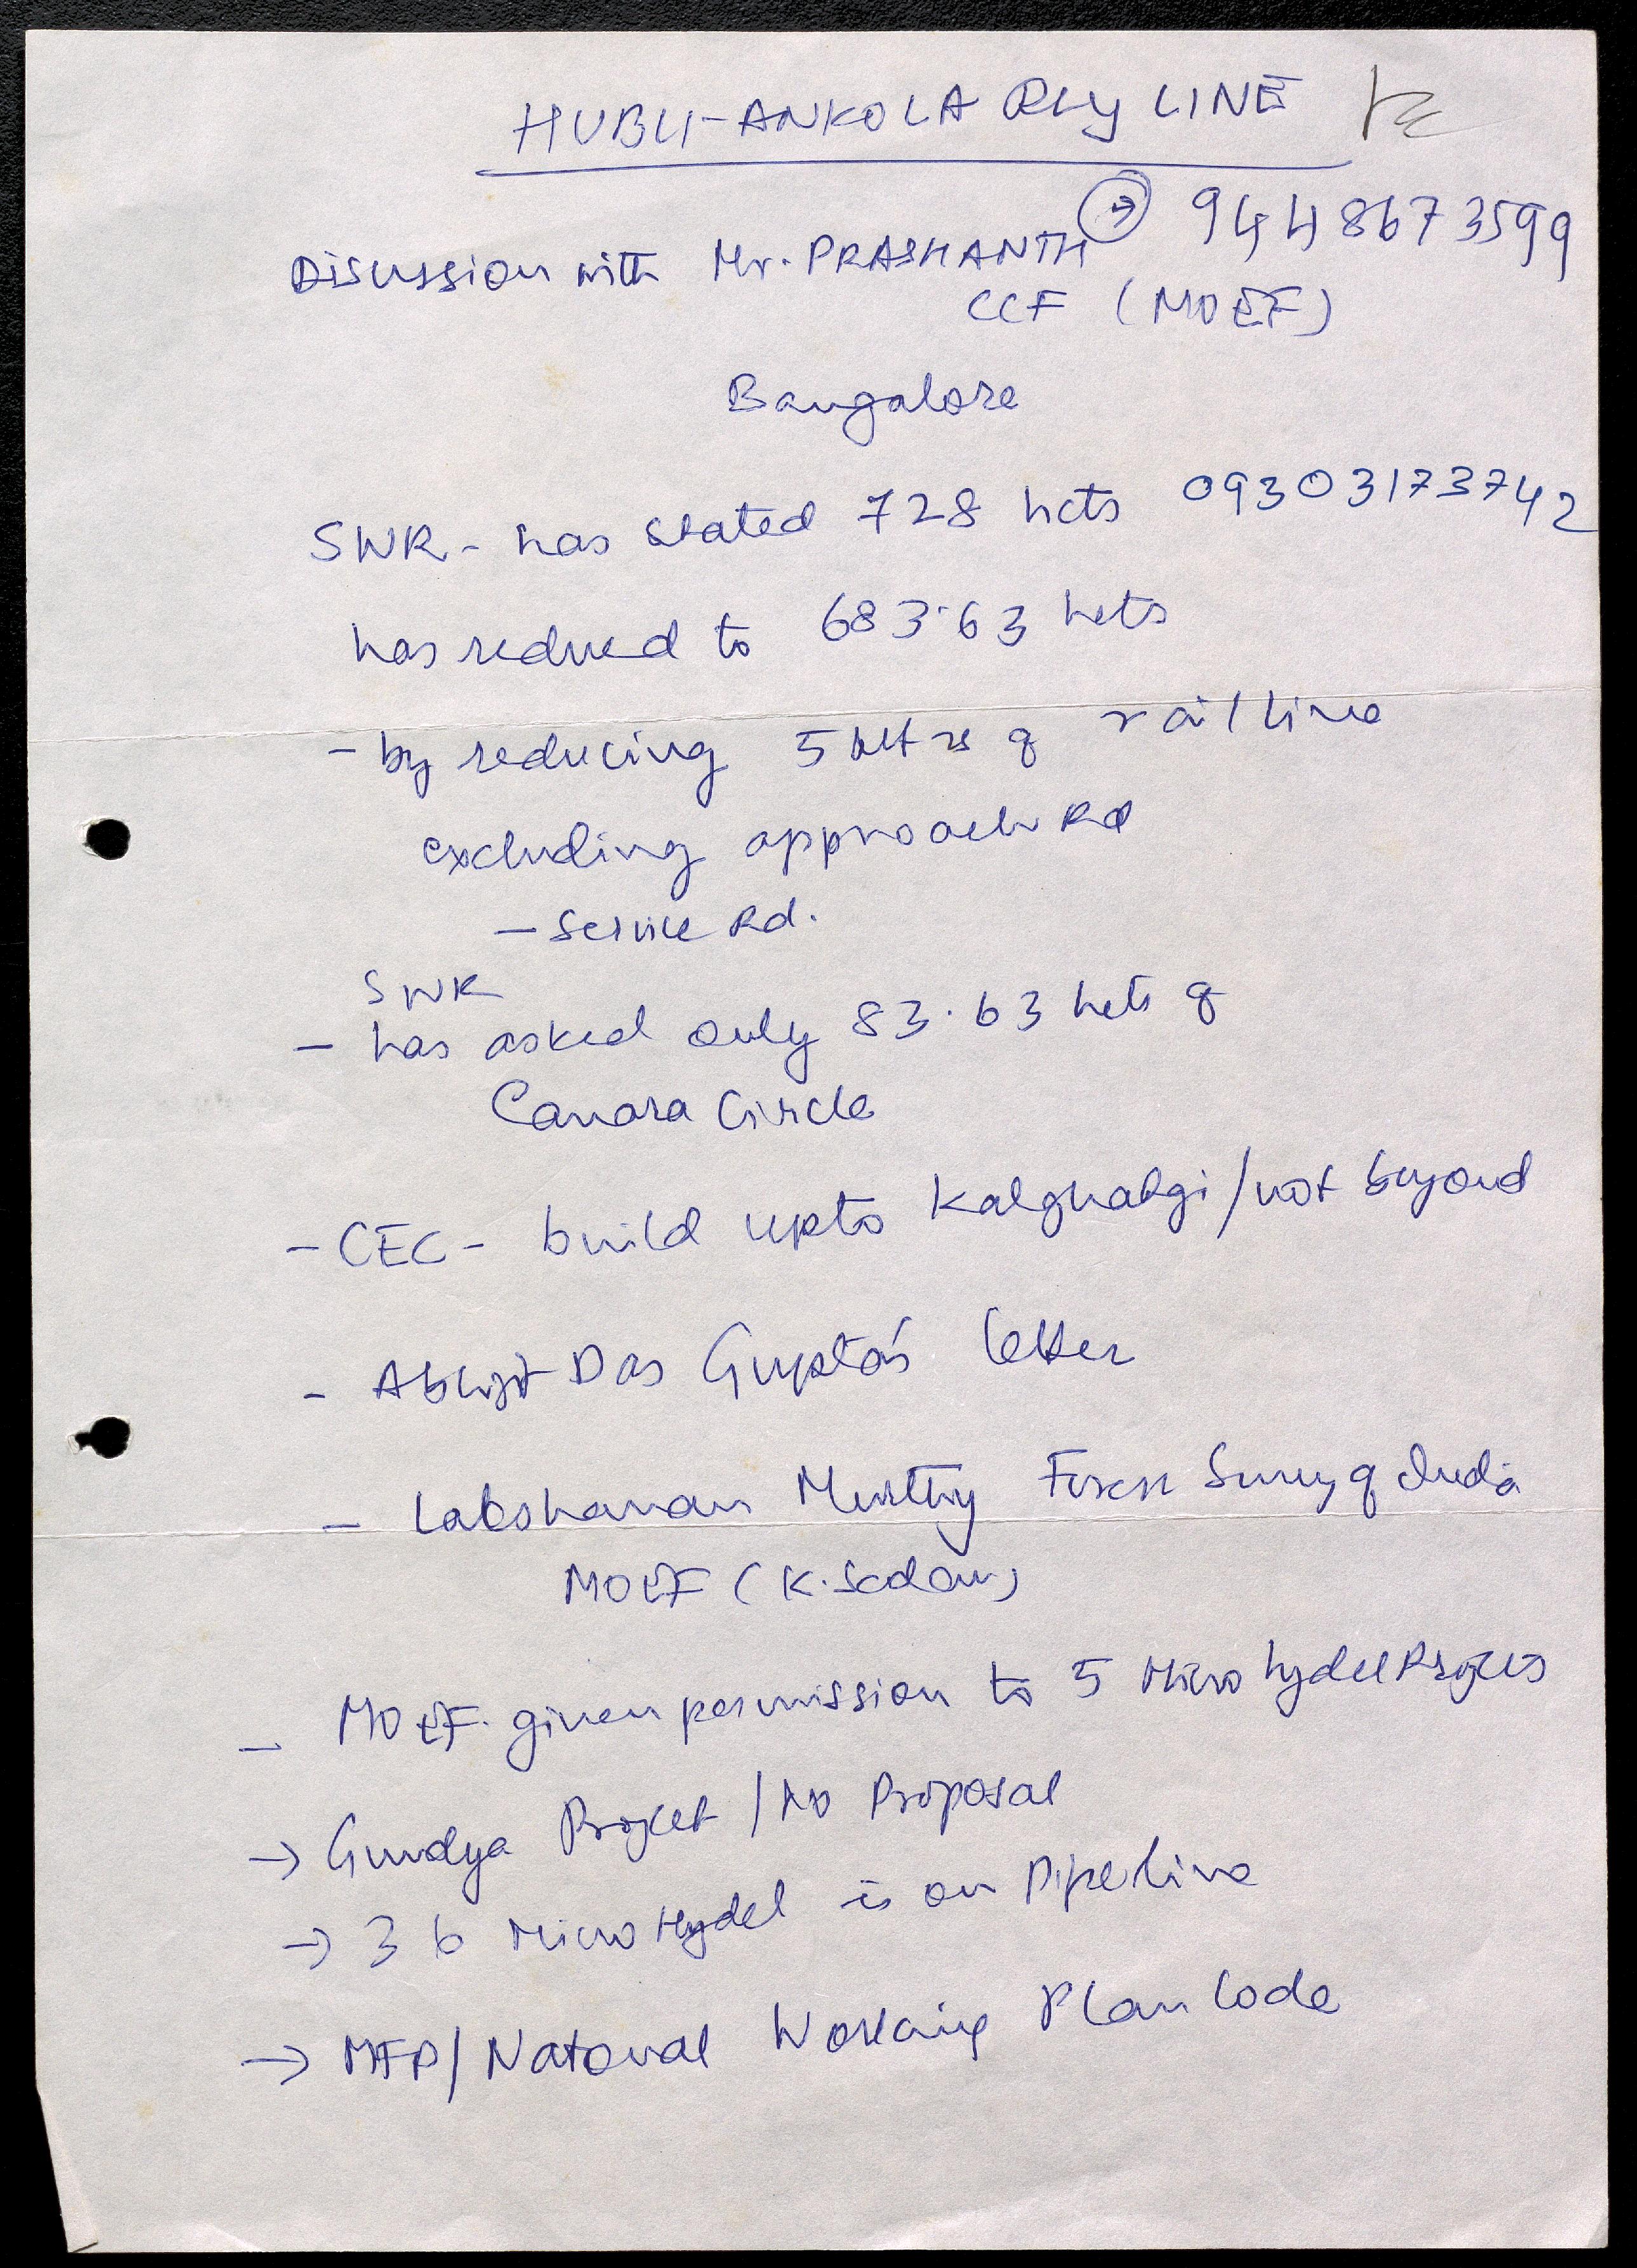 HUBLI-ANKOLA Rly LINE
Discussion with Mr. PRASHANTH → 9448673599
CCF (MOEF)
Bangalore
SWR - has stated 728 hcts 09303173742
has reduced to 683.63 hcts
- by reducing 5 Mtrs of rail line
excluding approach Rd
- Service Rd.
SWR
- has asked only 83.63 hcts of
Canara Circle
- CEC - build upto Kalghatgi / not beyond
- Abhijit Das Gupta's letter
- Lakshman Murthy Forest Survey of India
MOEF (K.
- MOEF given permission to 5 Micro hydel Projects
→ Gundya Project / No Proposal
→ 36 Micro Hydel is on Pipeline
→ MFP / National Working Plan Code